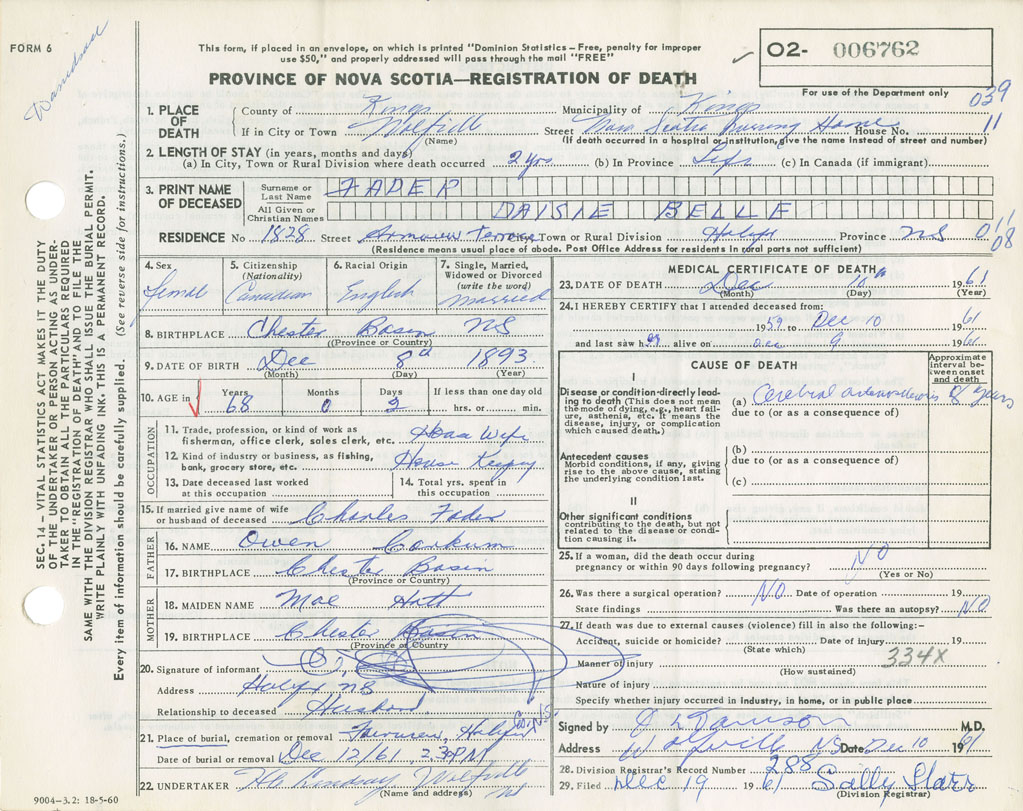 FORM 6
This form, if placed in an envelope, on which is printed "Dominion Statistics – Free, penalty for improper
use $50," and properly addressed will pass through the mail "FREE"
O2- 006762
For use of the Department only
PROVINCE OF NOVA SCOTIA—REGISTRATION OF DEATH
039
1. PLACE OF DEATH
County of Kings Municipality of Kings
If in City or Town Street Nova Scotia Nursing Home House No. 11
(Name) (If death occurred in a hospital or institution, give the name instead of street and number)
2. LENGTH OF STAY (in years, months and days)
(a) In City, Town or Rural Division where death occurred 2 yrs (b) In Province Life (c) In Canada (if immigrant)
3. PRINT NAME OF DECEASED
Surname or Last Name FADER
All Given or Christian Names DAISIE BELLE
RESIDENCE No 1828 Street Terrace City, Town or Rural Division Halifx Province NS 01
08
(Residence means usual place of abode. Post Office Address for residents in rural parts not sufficient)
4. Sex Femal
5. Citizenship (Nationality) Canadian
6. Racial Origin English
7. Single, Married, Widowed or Divorced (write the word) Married
8. BIRTHPLACE Chester Basin NS
(Province or Country)
9. DATE OF BIRTH Dec 8th 1893
(Month) (Day) (Year)
10. AGE in Years 68 Months 0 Days 2 If less than one day old hrs. or min.
OCCUPATION
11. Trade, profession, or kind of work as
fisherman, office clerk, sales clerk, etc. House Wife
12. Kind of industry or business, as fishing,
bank, grocery store, etc. House Keeping
13. Date deceased last worked
at this occupation
14. Total yrs. spent in
this occupation
15. If married give name of wife
or husband of deceased Charles Fader
FATHER
16. NAME Owen Corkum
17. BIRTHPLACE Chester Basin
(Province or Country)
MOTHER
18. MAIDEN NAME Mae Hatt
19. BIRTHPLACE Chester Basin
(Province or Country
20. Signature of informant
Address Halifx NS
Relationship to deceased Husband
21. Place of burial, cremation or removal Fairview, Halifax Co. N.S.
Date of burial or removal Dec 12/61 2.30 PM
22. UNDERTAKER Wolfville NS
(Name and address)
9004-3.2: 18-5-60
MEDICAL CERTIFICATE OF DEATH
23. DATE OF DEATH Dec 10th 1961
(Month) (Day) (Year)
24. I HEREBY CERTIFY that I attended deceased from:
1959 to Dec 10 1961
and last saw her alive on Dec 9 1961
CAUSE OF DEATH
Approximate interval between onset and death
I
Disease or condition directly leading to death (This does not mean the mode of dying, e.g., heart failure, asthenia, etc. It means the disease, injury, or complication which caused death.)
(a) Cerebral arteriosclerosis 8 years
due to (or as a consequence of)
Antecedent causes
Morbid conditions, if any, giving rise to the above cause, stating the underlying condition last.
(b)
due to (or as a consequence of)
(c)
II
Other significant conditions
contributing to the death, but not related to the disease or condition causing it.
25. If a woman, did the death occur during
pregnancy or within 90 days following pregnancy? NO
(Yes or No)
26. Was there a surgical operation? NO Date of operation 19
State findings Was there an autopsy? NO
27. If death was due to external causes (violence) fill in also the following:–
Accident, suicide or homicide? Date of injury 19
(State which) 334X
Manner of injury
(How sustained)
Nature of injury
Specify whether injury occurred in industry, in home, or in public place
Signed by M.D.
Address Wolfville NS Date Dec 10 1961
28. Division Registrar's Record Number 288
29. Filed Dec 19 1961 Sally Starr
(Division Registrar)
SEC. 14 – VITAL STATISTICS ACT MAKES IT THE DUTY
OF THE UNDERTAKER OR PERSON ACTING AS UNDER-
TAKER TO OBTAIN ALL THE PARTICULARS REQUIRED
IN THE "REGISTRATION OF DEATH" AND TO FILE THE
SAME WITH THE DIVISION REGISTRAR WHO SHALL ISSUE THE BURIAL PERMIT.
WRITE PLAINLY WITH UNFADING INK. THIS IS A PERMANENT RECORD.
Every item of information should be carefully supplied. (See reverse side for instructions.)